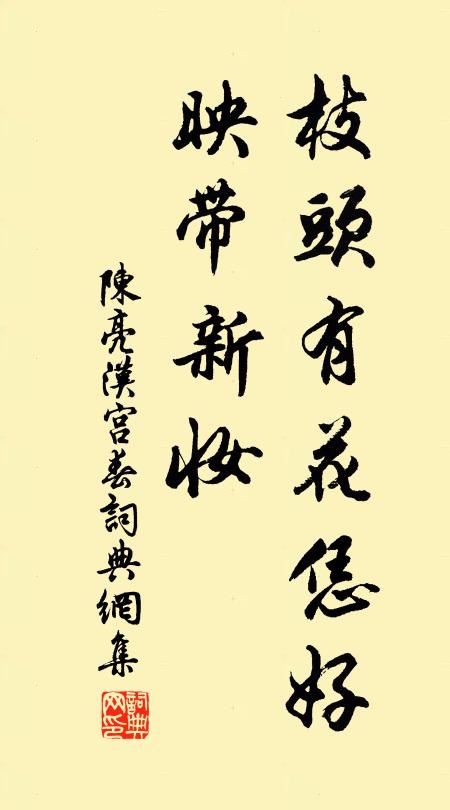 枝頭有花恁好
映帶新妝
陳亮漢宮春詞典網集
詞典网印